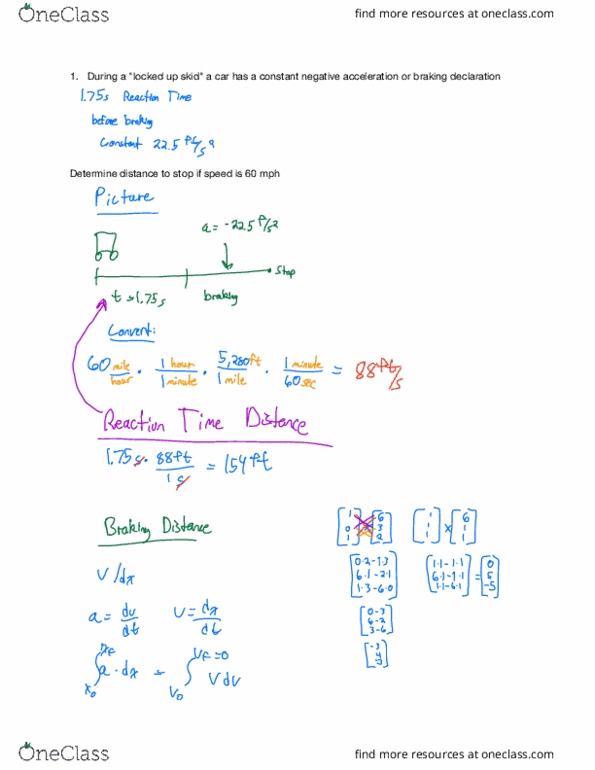 OneClass
find more resources at oneclass.com
1. During a "locked up skid" a car has a constant negative acceleration or braking declaration
1.75s Reaction Time
before braking
Constant 22.5 ft/s²
Determine distance to stop if speed is 60 mph
Picture
a = -22.5 ft/s²
Stop
t = 1.75s braking
Convert:
60 mile/hour · 1 hour/1 minute · 5,280ft/1 mile · 1 minute/60 sec = 88 ft/s
Reaction Time Distance
1.75 s · 88ft/1s = 154 ft
Braking Distance
V/dx
a = dv/dt V = dx/dt
∫ x₀ xf a · dx = ∫ V₀ Vf=0 V dv
[1 0 1] [6 3 2] [1 1 1] x [6 1 1]
[0·2-1·3 6·1-2·1 1·3-6·0] [1·1-1·1 6·1-1·1 1·1-6·1] = [0 5 -5]
[0-3 6-2 3-6]
[-3 4 -3]
OneClass
find more resources at oneclass.com